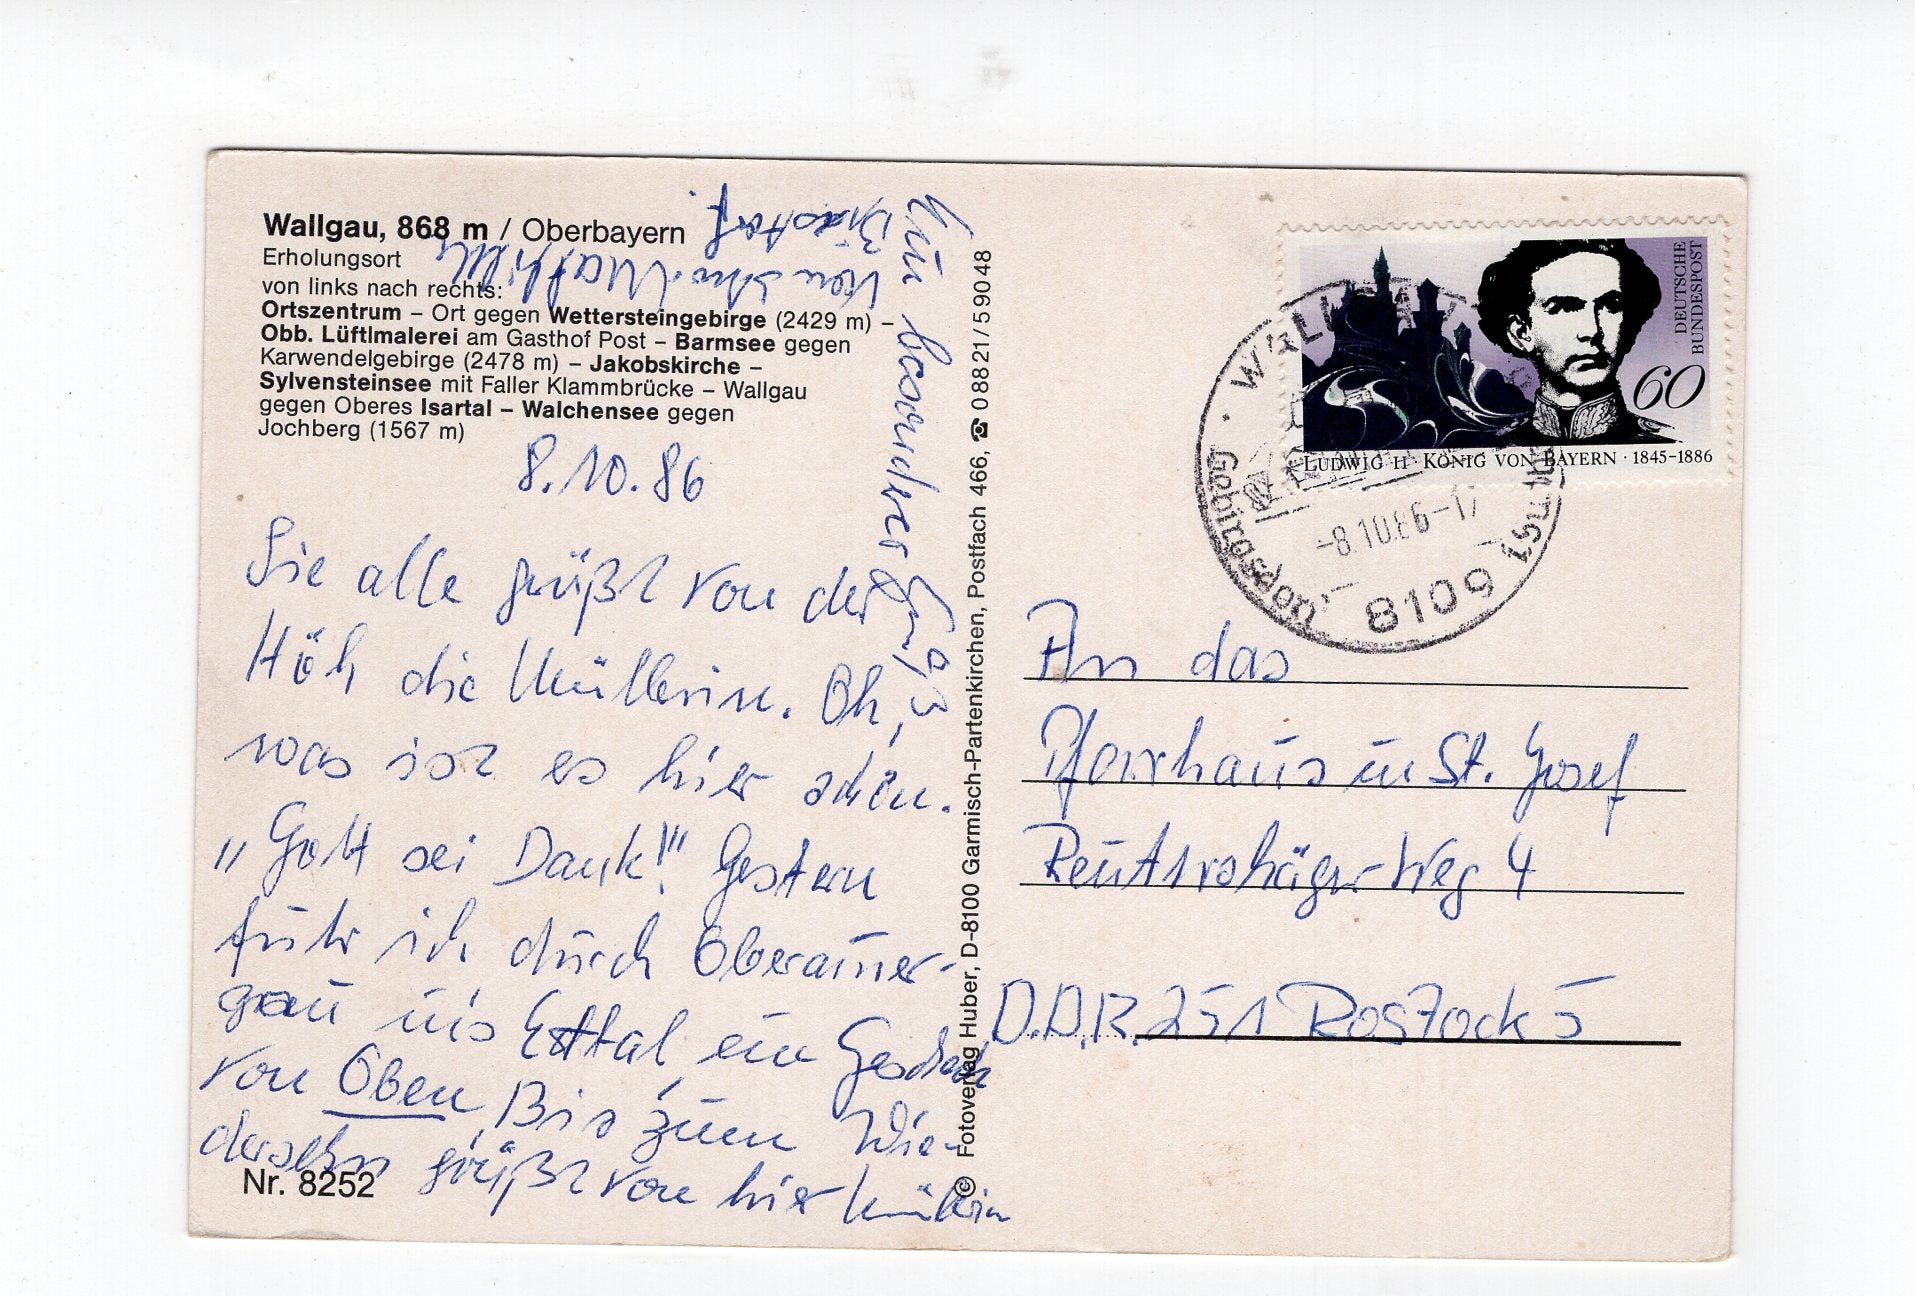 Wallgau, 868 m / Oberbayern
Erholungsort
von links nach rechts:
Ortszentrum – Ort gegen Wettersteingebirge (2429 m) –
Obb. Lüftlmalerei am Gasthof Post – Barmsee gegen
Karwendelgebirge (2478 m) – Jakobskirche –
Sylvensteinsee mit Faller Klammbrücke – Wallgau
gegen Oberes Isartal – Walchensee gegen
Jochberg (1567 m)
8.10.86
Sie alle grüßt von der
Höh die Müllerin. Oh,
was ist es hier schön.
„Gott sei Dank!" Gestern
fuhr ich durch Oberammer-
gau ins Ettal, ein Geschenk
von Oben. Bis zum Wie-
dersehn grüßt von hier Müllerin
Ein besonderer Gruß
von
Nr. 8252
© Fotoverlag Huber, D-8100 Garmisch-Partenkirchen, Postfach 466, ☎ 08821/59048
DEUTSCHE
BUNDESPOST
60
LUDWIG II · KÖNIG VON BAYERN · 1845-1886
WALLGAU
-8.10.86-17
8109
An das
Pfarrhaus in St. Josef
Reutershäger Weg 4
D.D.R. 251 Rostock 5